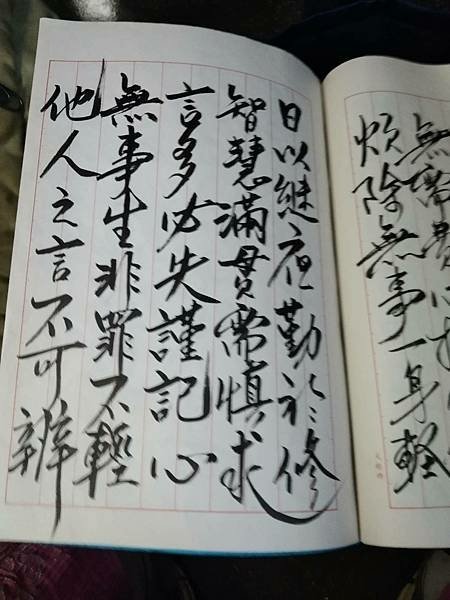 無需費心
煩除無事一身輕
日以繼夜勤於修
智慧滿貫需慎求
言多必失謹記心
無事生非罪不輕
他人之言不可辨